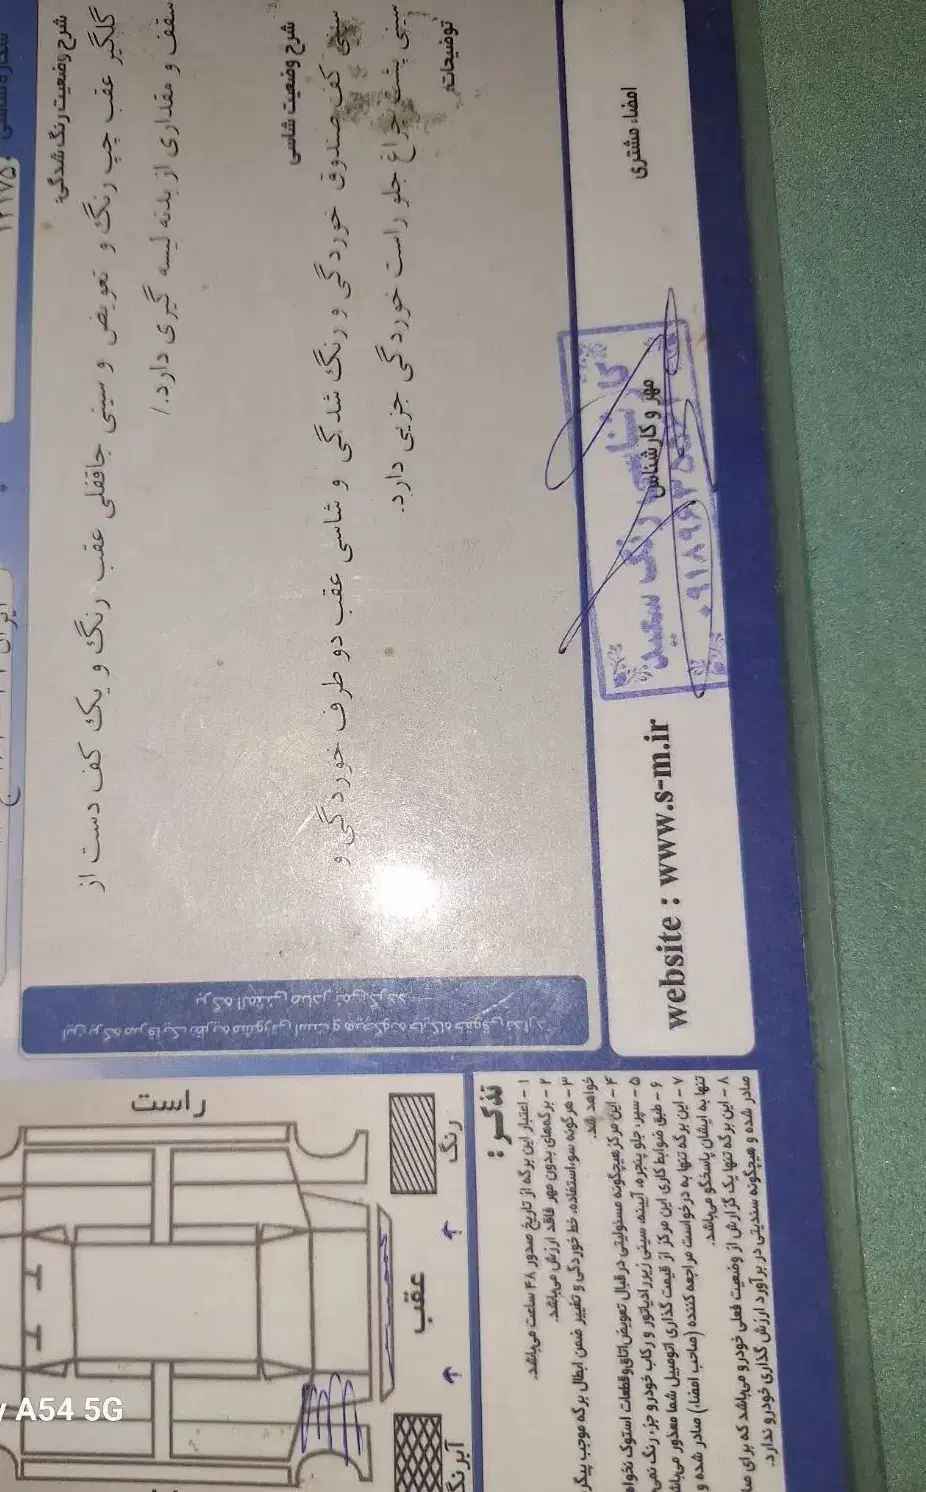 شرح وضعیت رنگ شدگی:
گلگیر عقب چپ رنگ و تعویض و سینی جاقفلی عقب رنگ و یک کف دست از
سقف و مقداری از بدنه لیسه گیری دارد./
شرح وضعیت شاسی
سینی کف صندوق خوردگی و رنگ شدگی و شاسی عقب دو طرف خوردگی و
سینی پشت چراغ جلو راست خوردگی جزیی دارد.
توضیحات:
امضاء مشتری
مهر و کارشناس
کارشناسی رنگ سعید
website : www.s-m.ir
راست
عقب
رنگ
آبرنگ
تذکر :
۱ - اعتبار این برگه از تاریخ صدور ۴۸ ساعت می‌باشد.
۲ - برگه‌های بدون مهر فاقد ارزش می‌باشد.
۳ - هرگونه سوءاستفاده، خط خوردگی و تغییر ضمن ابطال برگه موجب پیگر
خواهد شد.
۴ - این مرکز هیچگونه مسئولیتی در قبال تعویض اتاق و قطعات استوک نخواه
۵ - سپر، جلو پنجره، آیینه، سینی زیر رادیاتور و رکاب خودرو جزء رنگ نمی
۶ - طبق ضوابط کاری این مرکز از قیمت گذاری اتومبیل شما معذور می‌باش
۷ - این برگه تنها به درخواست مراجعه کننده (صاحب امضاء) صادر شده و
تنها به ایشان پاسخگو می‌باشد.
۸ - این برگه تنها یک گزارش از وضعیت فعلی خودرو می‌باشد که برای ما
صادر شده و هیچگونه سندیتی در برآورد ارزش گذاری خودرو ندارد.
A54 5G